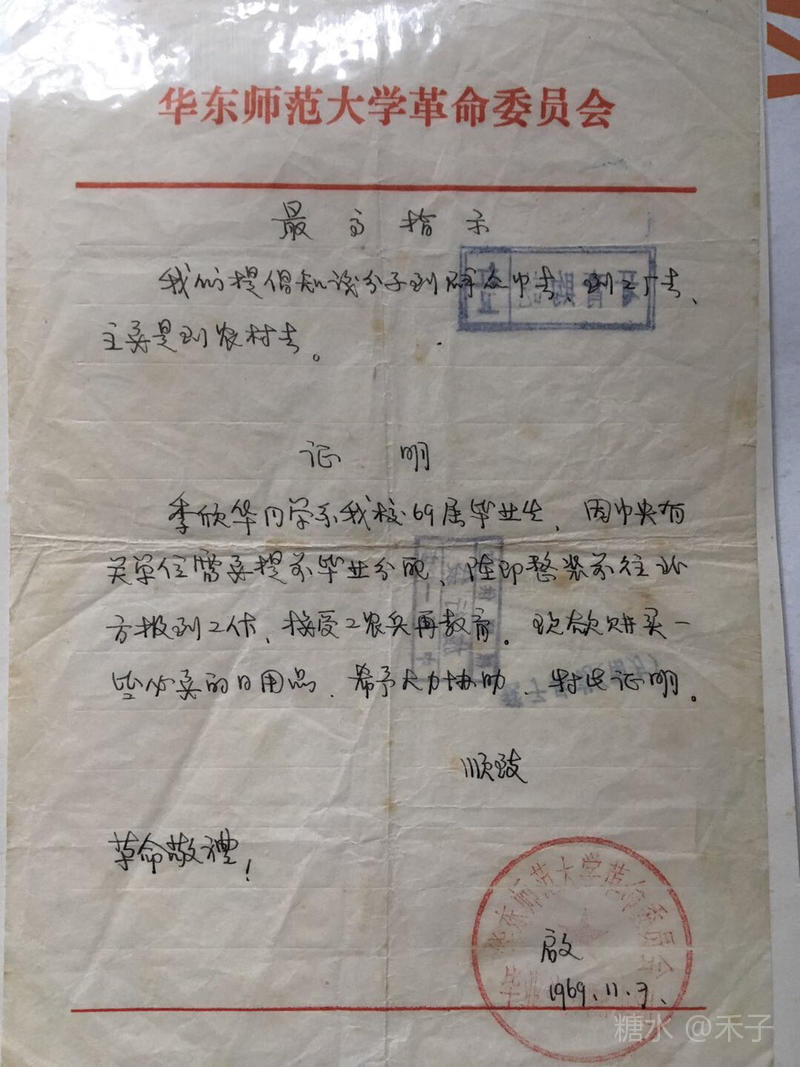 华东师范大学革命委员会
最高指示
我们提倡知识分子到群众中去、到工厂去、
主要是到农村去。
证明
季欣华同学系我校69届毕业生，因中央有
关单位需要提前毕业分配、随即整装前往北
方报到工作，接受工农兵再教育。现欲购买一
些必要的日用品，希予大力协助，特此证明。
顺致
革命敬礼！
华东师范大学革命委员会
毕业
启
1969.11.
糖水 @禾子